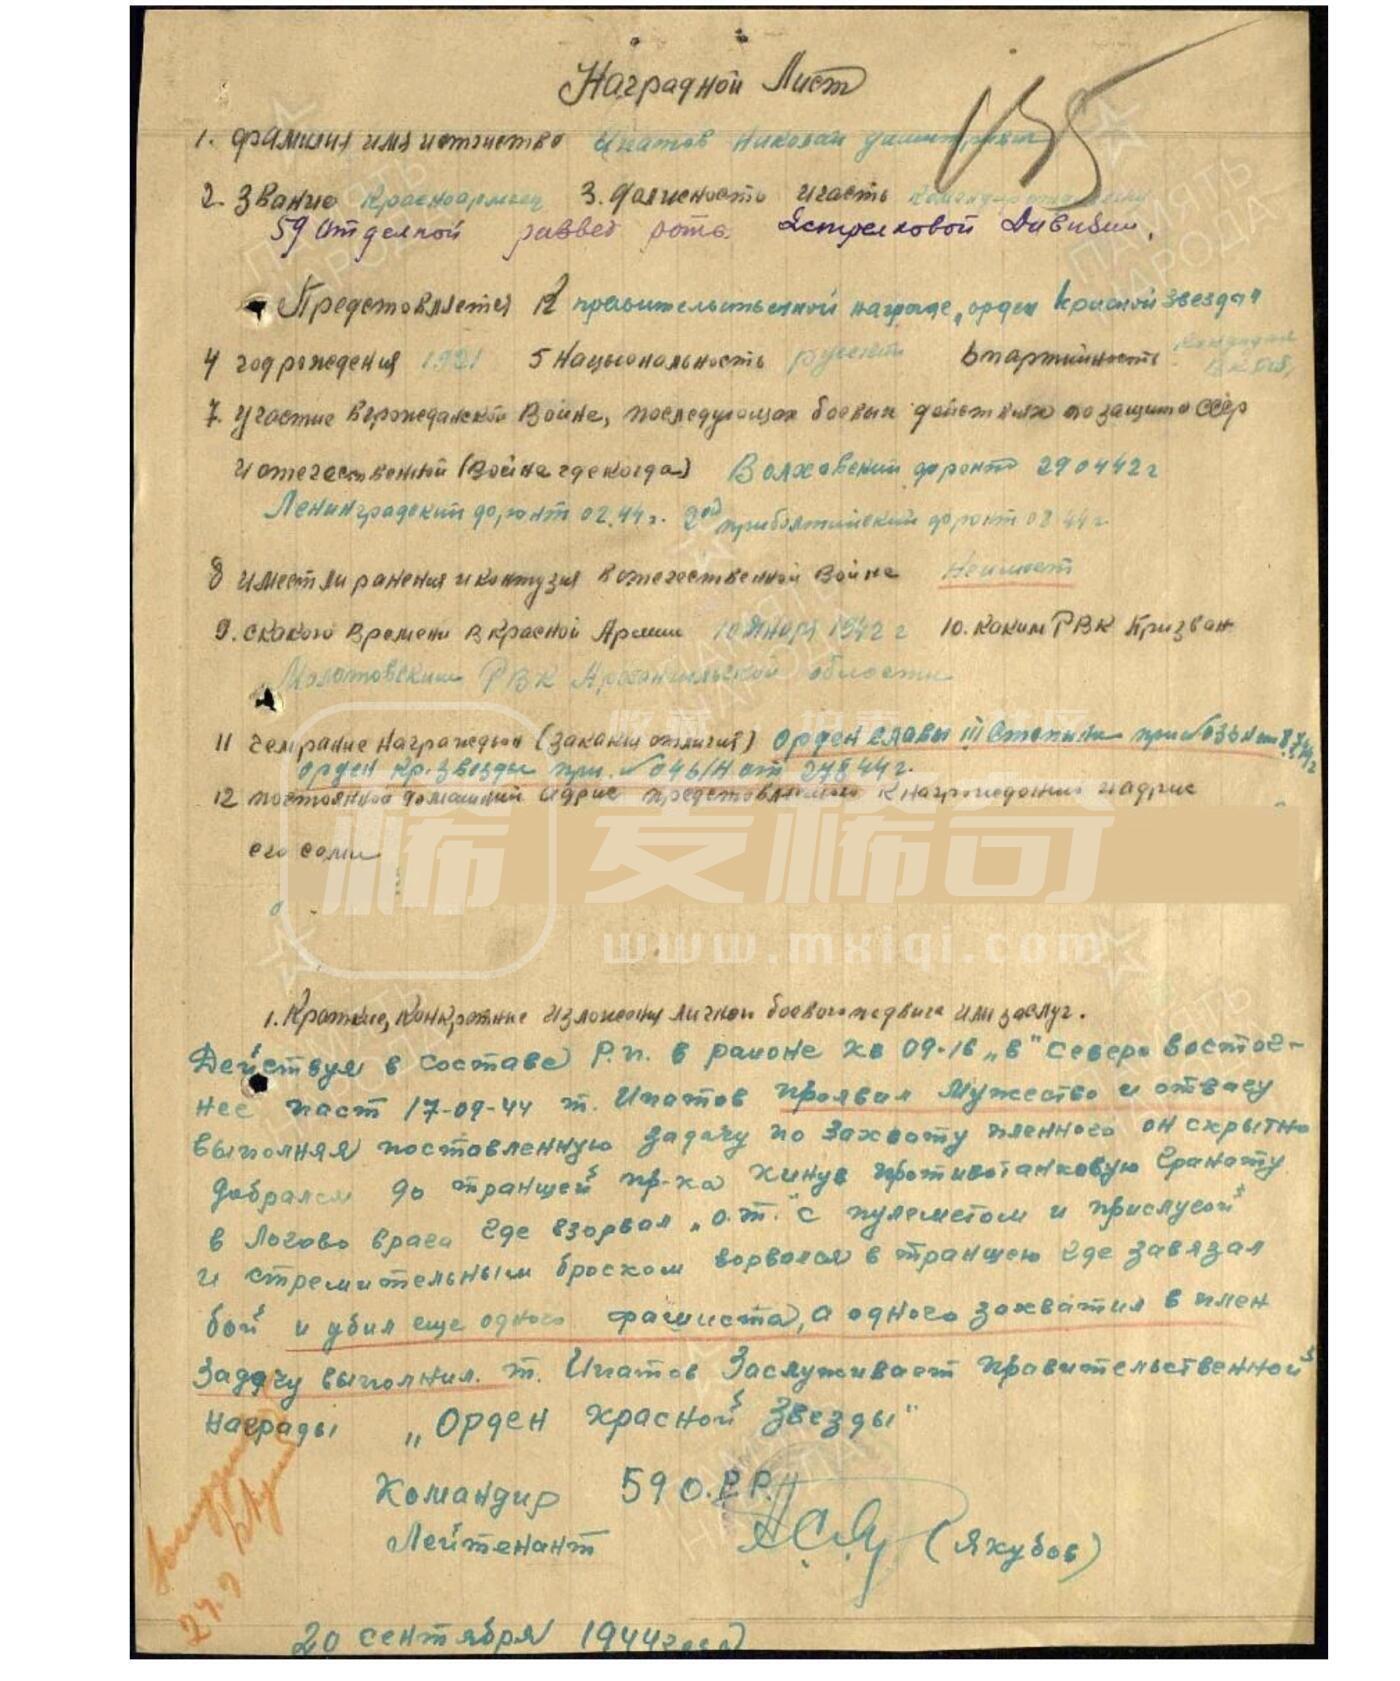 Наградной Лист
1. Фамилия имя и отчество Ипатов Николай
2. Звание Красноармеец 3. Должность и часть Командир
59 Отделной развед рота Дивизии.
Представляется К правительственной награде „орден Красной Звезда"
4 год рождения 1921 5 Национальность 6 партийность
7. Участие в гражданской Войне, последующих боевых действиях по защите СССР
и отечественной (Война где когда) Волховский фронт 290442 г
Ленинградский фронт 02.44 г. 2ой прибалтийский фронт 08 44 г.
8 имеет ли ранения и контузия в отечественной Войне Не имеет
9. с какого Времени в Красной Армии 10 Января 1942 г 10. каким РВК Призван
Молотовским РВК Архангельской области
11 чем ранее Награжден (за какие отличия) Орден славы III Степени
орден Кр. Звезды пр. № 046/Н от 27 8 44 г.
12 постоянной домашний адрис представляемого к награждению и адрис
его семи
收藏 · 拍卖 · 社区
稀 麦稀奇
www.mxiqi.com
1. Краткие, Конкретние изложения личной боевого подвига или заслуг.
Действуя в составе Р.п. в районе кв 09-16 „в" северо восточ-
нее паст 17-09-44 т. Ипатов проявил мужество и отвагу
выполняя поставленную задачу по захвату пленного он скрытно
добрался до траншей пр-ка кинув противотанковую гранату
в логово врага где взорвал „о.т." с пулеметом и прислугой
и стремительным броском ворвался в траншею где завязал
бой и убил еще одного фашиста, а одного захватил в плен
Задачу выполнил. т. Ипатов Заслуживает правительственной
награды „Орден красной Звезды"
Командир 59 О.Р.Р.
Лейтенант (Якубов)
24.9
20 сентября 1944 года